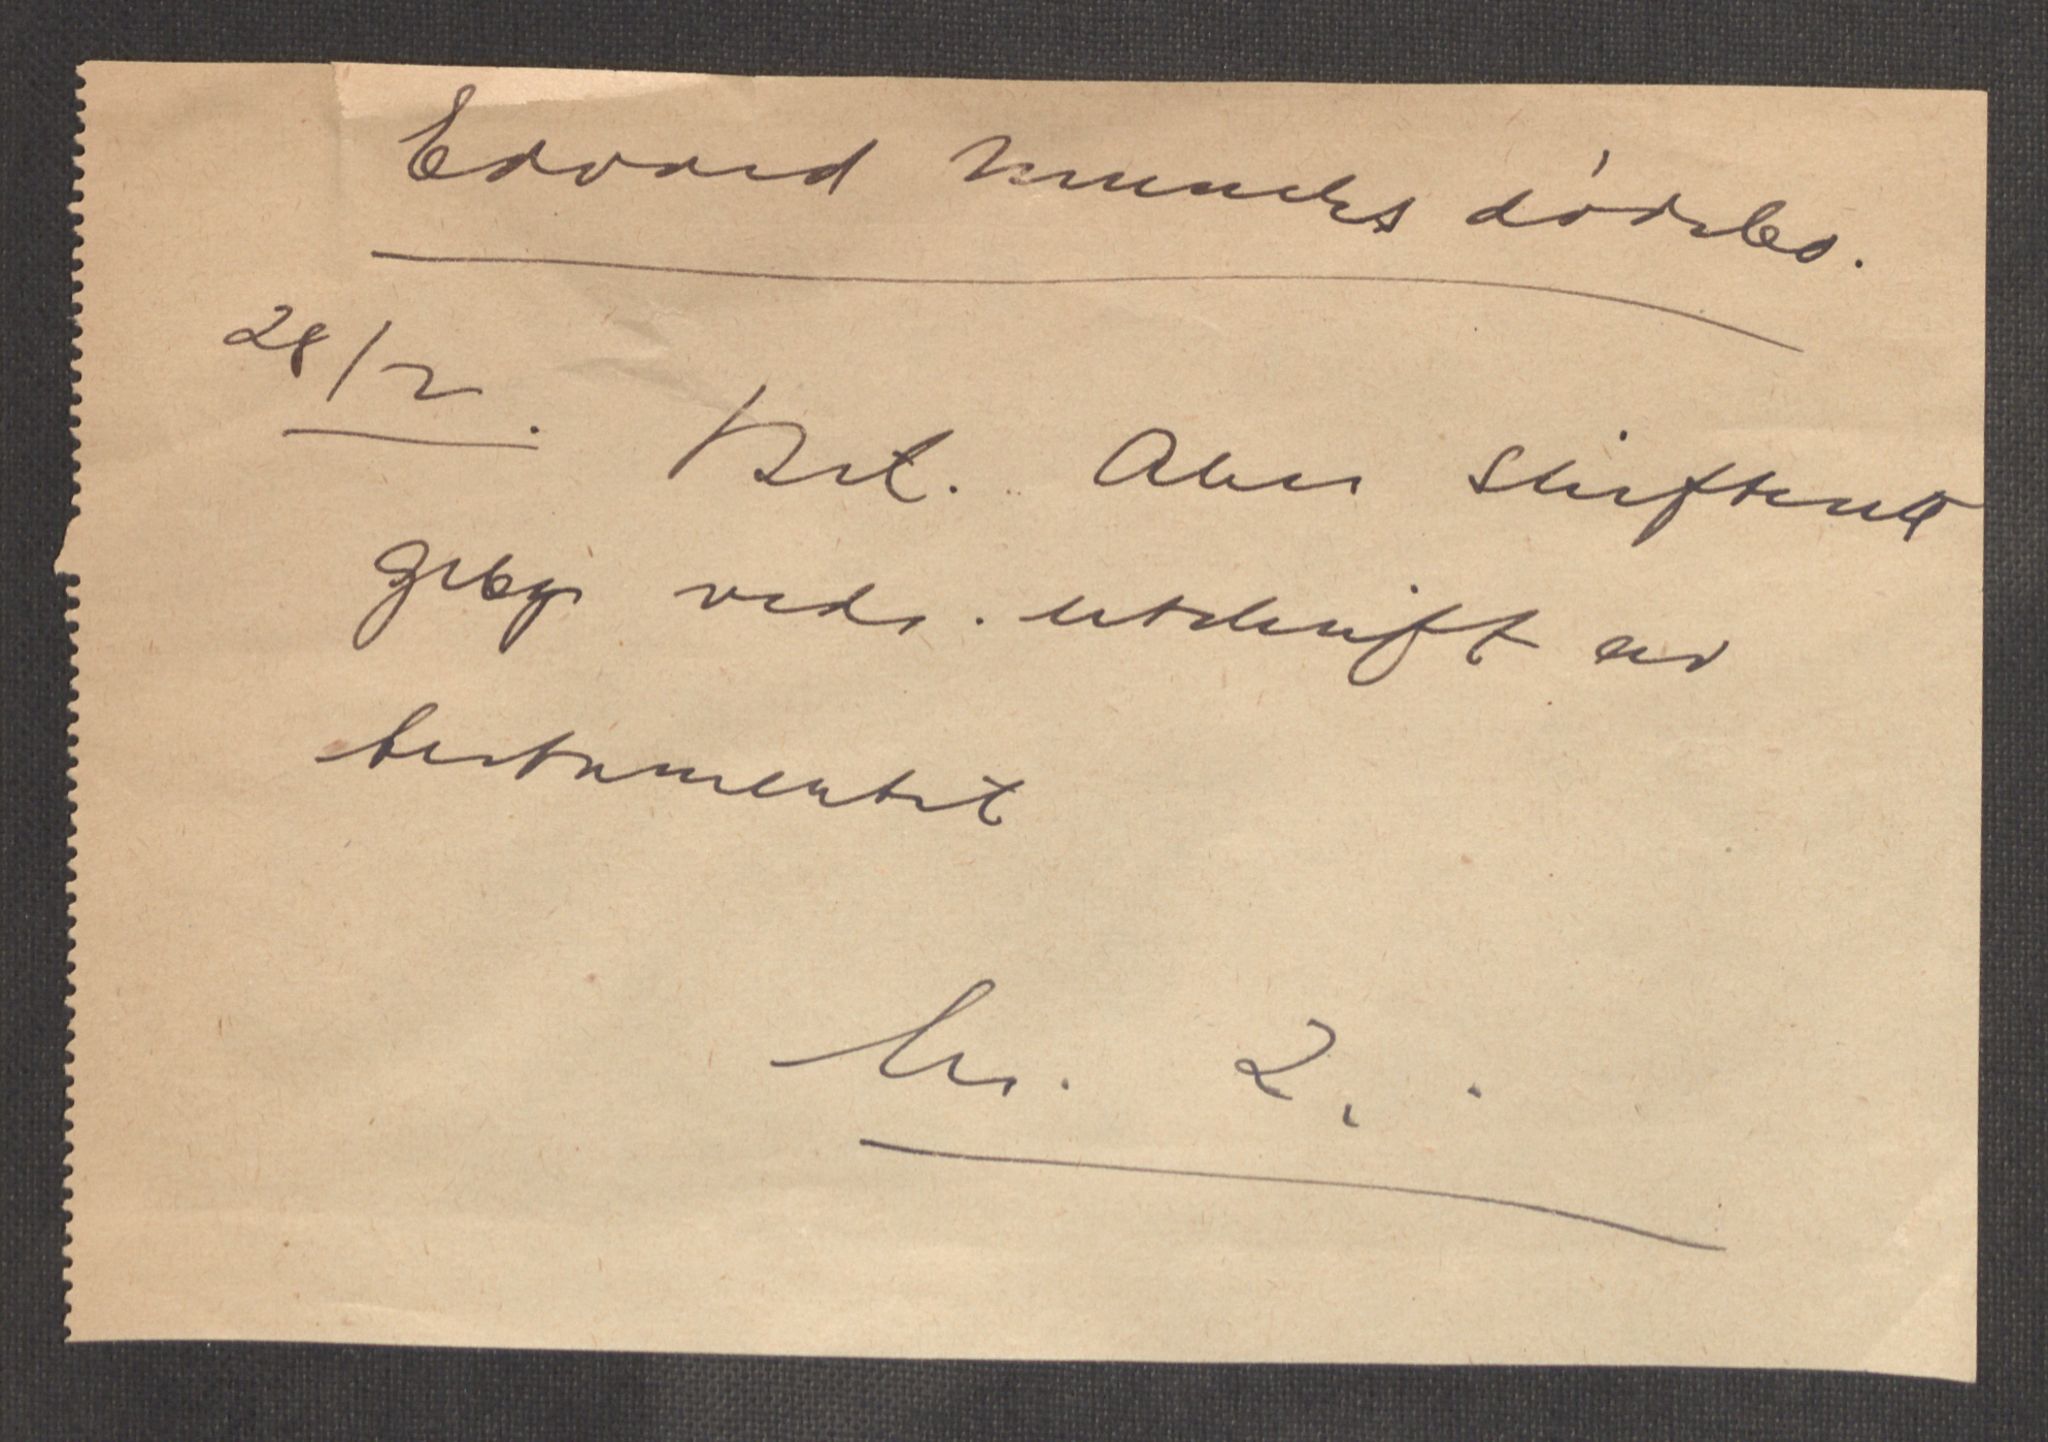 Edvard Munchs dödsbo.
28/2. Bet. Aker Skifterett
geby vedr. utskrift av
testamentet
kr. 2.